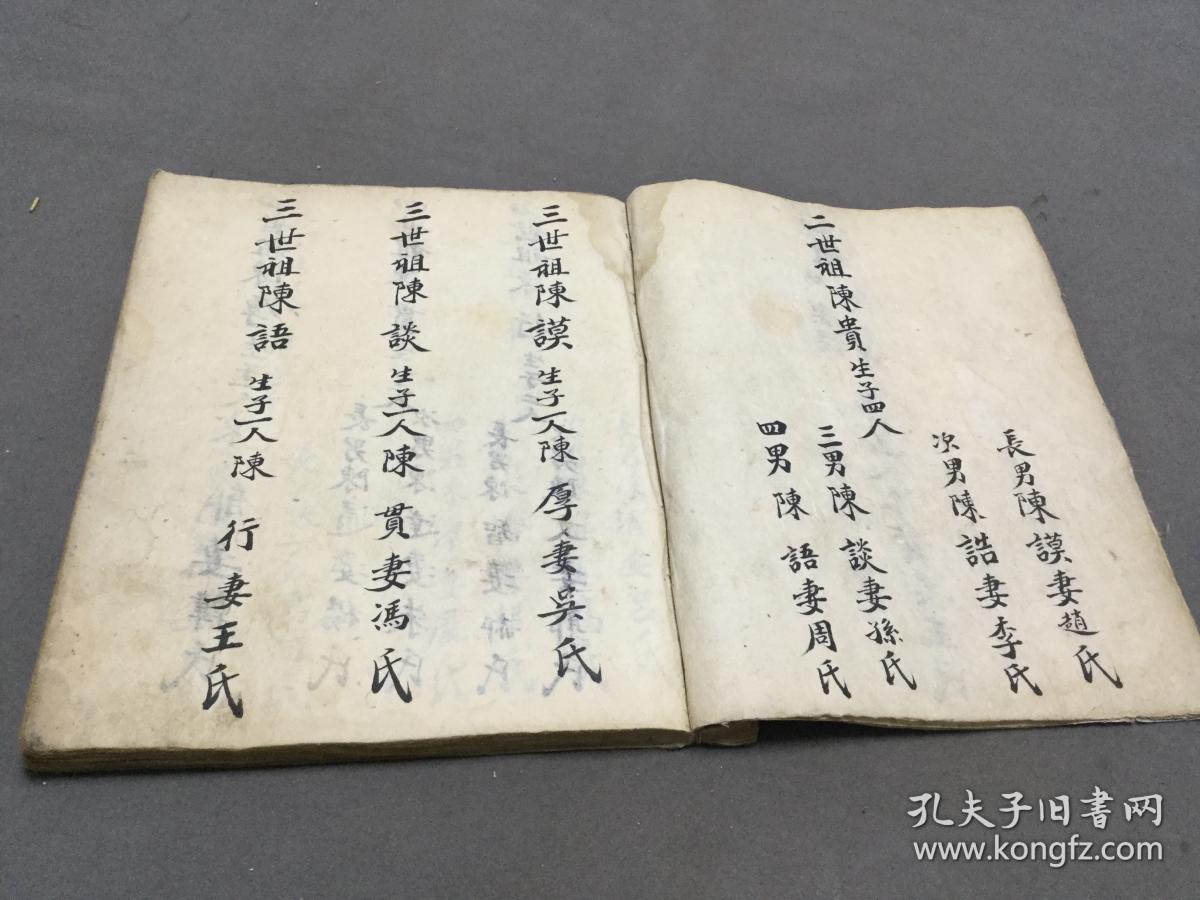 二世祖陳貴生子四人
長男陳謨妻趙氏
次男陳誥妻李氏
三男陳談妻孫氏
四男陳語妻周氏
三世祖陳謨生子一人陳厚妻吳氏
三世祖陳談生子一人陳貫妻馮氏
三世祖陳語生子一人陳行妻王氏
孔夫子旧书网
www.kongfz.com